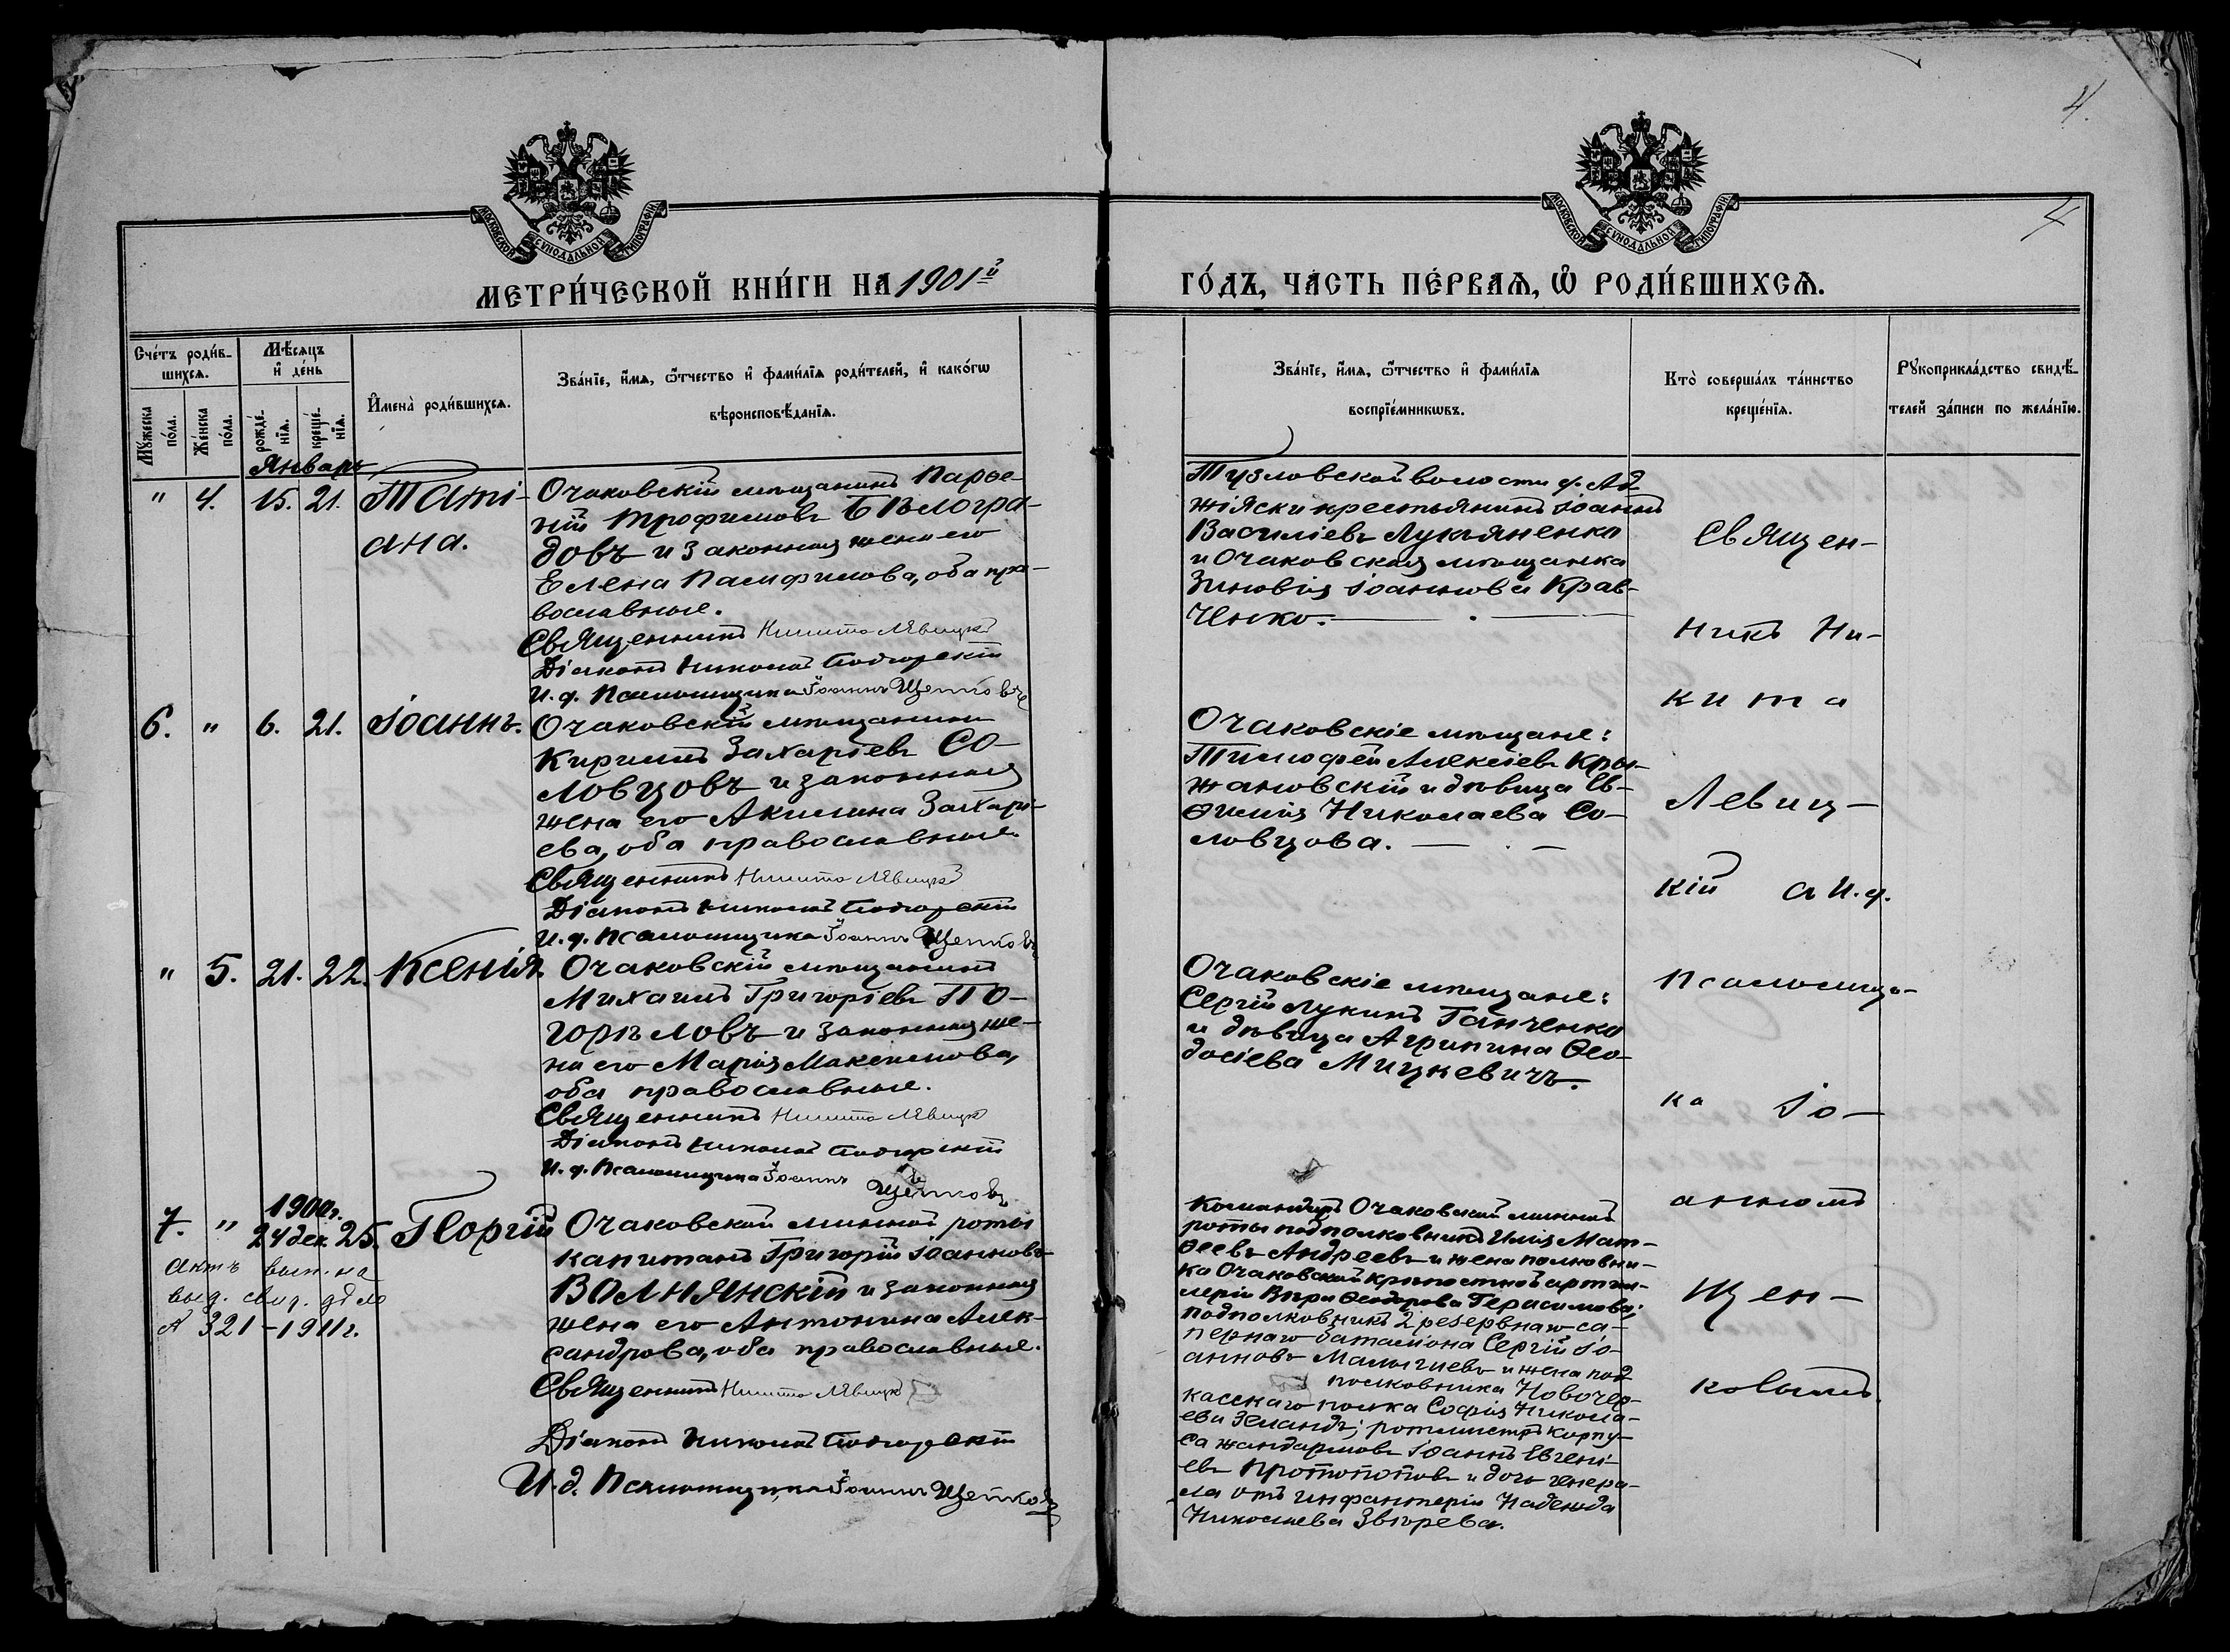 4.
4
МОСКОВСКОЙ СѴНОДАЛЬНОЙ ТИПОГРАФІИ
МОСКОВСКОЙ СѴНОДАЛЬНОЙ ТИПОГРАФІИ
МЕТРИ́ЧЕСКОЙ КНИ́ГИ НА 1901й
ГО́ДЪ, ЧА́СТЬ ПЕ́РВАѦ, Ѽ РОДИ́ВШИХСѦ.
Сче́тъ роди́в-
шихсѧ.
Мꙋ́жеска по́ла.
Же́нска по́ла.
Мѣ́сѧцъ
и҆ де́нь
рожде́-
нїѧ.
креще́-
нїѧ.
И҆мена̀ роди́вшихсѧ.
Зва́нїе, и҆́мѧ, ѻ҆́тчество и҆ фами́лїѧ роди́телей, и҆ како́гѡ
вѣроисповѣ́данїѧ.
Зва́нїе, и҆́мѧ, ѻ҆́тчество и҆ фами́лїѧ
воспрїе́мникѡвъ.
Кто̀ соверша́лъ та́инство
креще́нїѧ.
Рꙋкоприкла́дство свидѣ́-
телей за́писи по жела́нїю.
Январь
" 4. 15. 21. Таті-
ана.
Очаковскій мѣщанинъ Парѳе-
ній Трофимовъ Бѣлогра-
довъ и законная жена его
Елена Памфилова, оба пра-
вославные.
Священникъ Никита Левицкій
Діаконъ Николай Подгорскій
И. д. Псаломщика Іоаннъ Щенковъ
Тузловской волости д. Ад-
жіяски крестьянинъ Іоаннъ
Василіевъ Лукьяненко
и Очаковская мѣщанка
Зиновія Іоаннова Крав-
ченко.
6. " 6. 21. Іоаннъ.
Очаковскій мѣщанинъ
Кириллъ Захаріевъ Со-
ловцовъ и законная
жена его Акилина Захарі-
ева, оба православные.
Священникъ Никита Левицкій
Діаконъ Николай Подгорскій
И. д. Псаломщика Іоаннъ Щенковъ
Очаковскіе мѣщане:
Тимофей Алексіевъ Кры-
жановскій и дѣвица Ев-
ѳимія Николаева Со-
ловцова.
" 5. 21. 22. Ксенія.
Очаковскій мѣщанинъ
Михаилъ Григоріевъ По-
горѣловъ и законная же-
на его Марія Максимова,
оба православные.
Священникъ Никита Левицкій
Діаконъ Николай Подгорскій
И. д. Псаломщика Іоаннъ
Щенковъ
Очаковскіе мѣщане:
Сергій Лукинъ Ганченко
и дѣвица Агрипина Ѳео-
досіева Мицкевичъ.
1900 г.
7. " 24 дек. 25. Георгій
Актъ вып. на
выд. свид. дѣло
№ 321-1911 г.
Очаковской минной роты
капитанъ Григорій Іоанновъ
Волнянскій и законная
жена его Антонина Алек-
сандрова, оба православные.
Священникъ Никита Левицкій
Діаконъ Николай Подгорскій
И. д. Псаломщика Іоаннъ Щенковъ
Командиръ Очаковской минной
роты подполковникъ Илія Мат-
ѳеевъ Андреевъ и жена полковни-
ка Очаковской крѣпостной артил-
леріи Вѣра Ѳеодорова Герасимова;
подполковникъ 2 резервнаго са-
пернаго батальона Сергій Іо-
анновъ и жена под
полковника Новочер-
касскаго полка Софія Никола-
ева Земандъ; ротмистръ корпу-
са жандармовъ Іоаннъ Евгені-
евъ Протопоповъ и дочь генера-
ла отъ инфантеріи Надежда
Николаева Звѣрева.
Священ-
никъ Ни-
кита
Левиц-
кій а И. д.
Псаломщи-
ка Іо-
анномъ
Щен-
ковымъ.